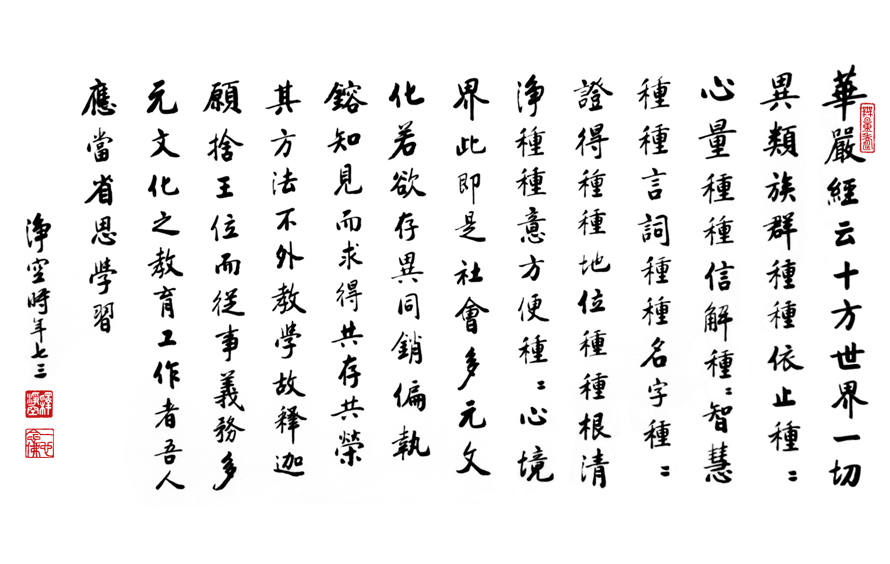 華嚴經云十方世界一切
異類族群種種依止種〻
心量種種信解種〻智慧
種種言詞種種名字種〻
證得種種地位種種根清
淨種種意方便種〻心境
界此即是社會多元文
化若欲存異同銷偏執
鎔知見而求得共存共榮
其方法不外教學故釋迦
願捨王位而從事義務多
元文化之教育工作者吾人
應當省思學習
淨空時年七三